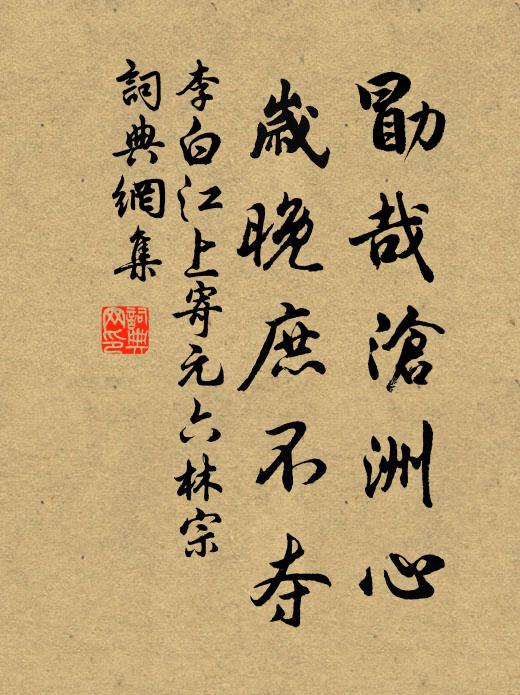 勖哉滄洲心
歲晚庶不夺
李白江上寄元六林宗
詞典網集
詞典网印